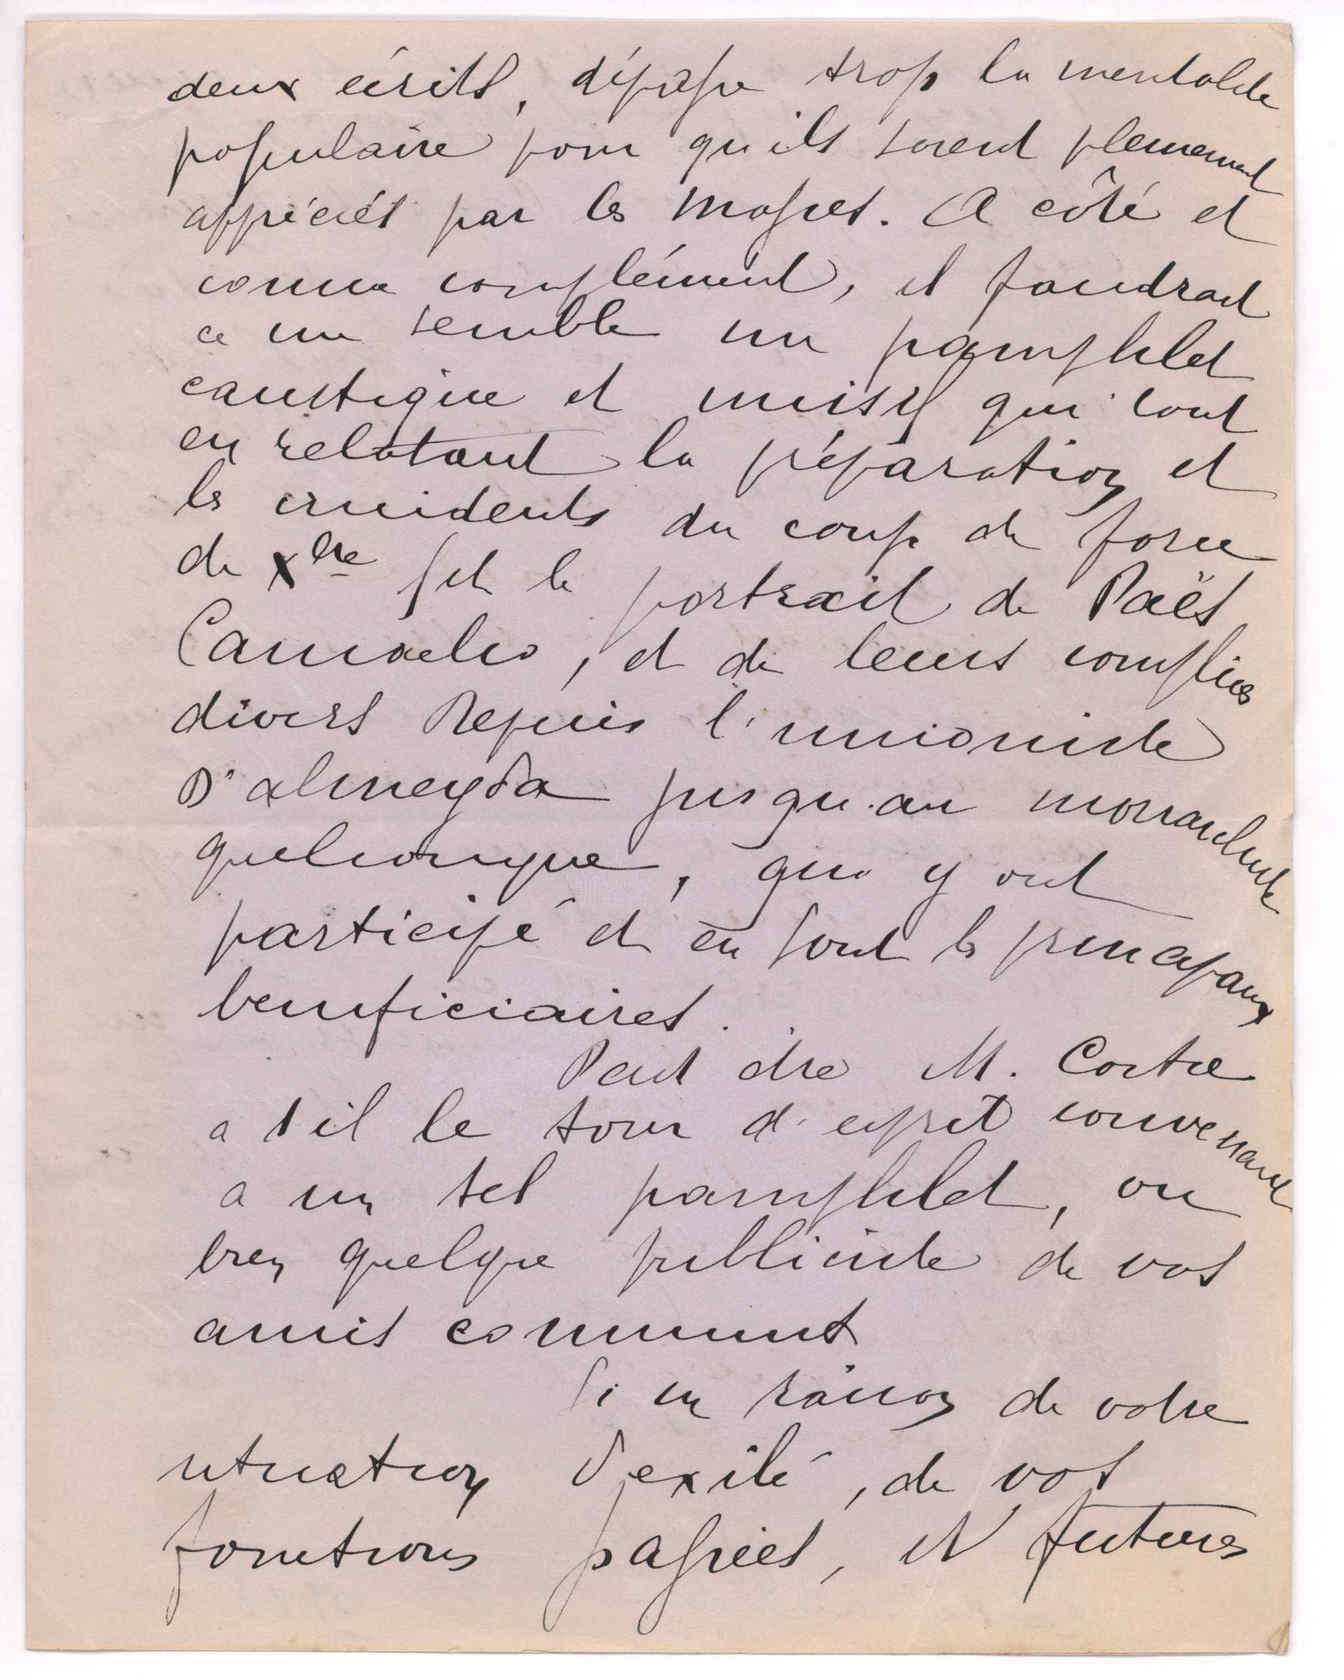 deux écrits, dépasse trop la mentalité
populaire pour qu'ils soient pleinement
appréciés par les masses. A côté et
comme complément, il faudrait
ce me semble un pamphlet
caustique et incisif qui tout
en relatant la préparation et
les incidents du coup de force
de Xbre fit le portrait de Paës
Camacho, et de leurs complices
divers depuis l'unioniste
D'almeyda jusqu'au monarchiste
quelconque, qui y ont
participé et en sont les principaux
beneficiaires.
Peut être M. Costa
a t il le tour d'esprit convenant
a un tel pamphlet, ou
bien quelque publiciste de vos
amis communs
Si en raison de votre
situation d'exilé, de vos
fonctions passées, et futures